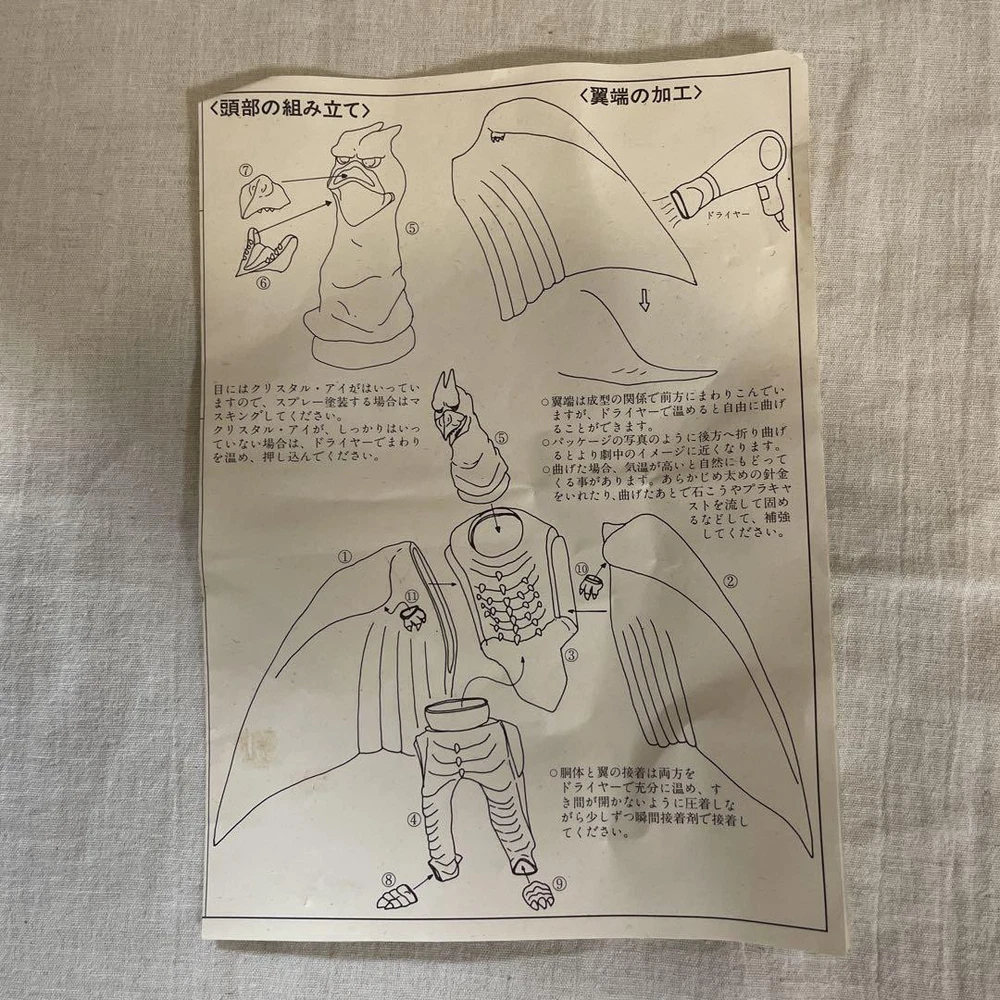 〈頭部の組み立て〉
⑦
⑤
⑥
目にはクリスタル・アイがはいってい
ますので、スプレー塗装する場合はマ
スキングしてください。
クリスタル・アイが、しっかりはいっ
ていない場合は、ドライヤーでまわり
を温め、押し込んでください。
〈翼端の加工〉
ドライヤー
○翼端は成型の関係で前方にまわりこんでい
ますが、ドライヤーで温めると自由に曲げ
ることができます。
○パッケージの写真のように後方へ折り曲げ
るとより劇中のイメージに近くなります。
○曲げた場合、気温が高いと自然にもどって
くる事があります。あらかじめ太めの針金
をいれたり、曲げたあとで石こうやプラキャ
ストを流して固め
るなどして、補強
してください。
⑤
①
⑪
⑩
②
③
④
⑧
⑨
○胴体と翼の接着は両方を
ドライヤーで充分に温め、す
き間が開かないように圧着しな
がら少しずつ瞬間接着剤で接着し
てください。